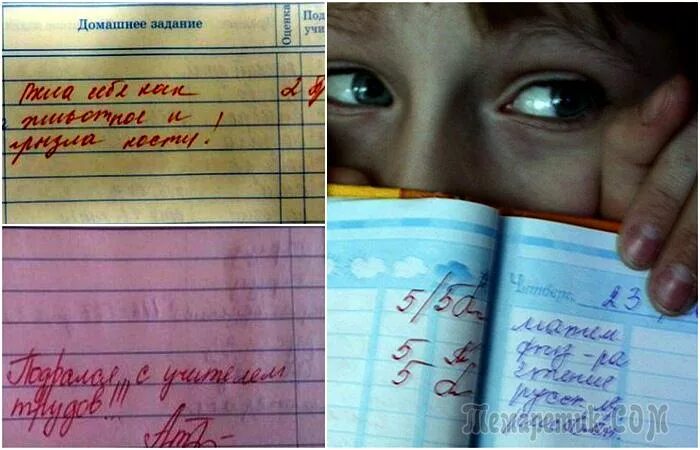 Домашнее задание
Оценка
Под
учи
Вела себя как
животное и
грызла кости!
2
Подралась с учителем
трудов!!!
5/5
5
5
Четверг 23
матем
физ-ра
чтение
русск. яз
Temaretik.COM